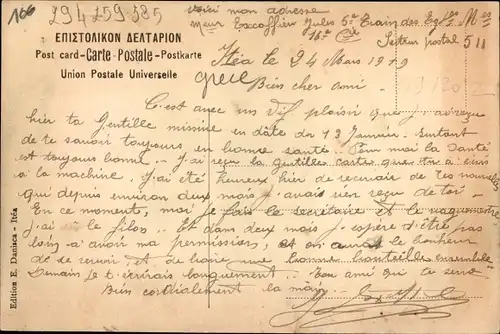 166
294259385
Voici mon adresse
Excoffier Jules 5e Train des Eq.
15e Cie
Secteur postal 511
ΕΠΙΣΤΟΛΙΚΟΝ ΔΕΛΤΑΡΙΟΝ
Post card-Carte-Postale-Postkarte
Union Postale Universelle
Itéa le 24 Mars 1919
grece
Bien cher ami
C'est avec un vif plaisir que j'ai reçu
hier ta Gentille missive en date du 13 Janvier. Autant
de te savoir toujours en bonne santé. Pour moi la santé
est toujours bonne. J'ai reçu la gentille carte que tu a
à la machine. J'ai été heureux hier de recevoir de tes nouvelles
qui depuis environ deux mois j'avais rien reçu de toi.
En ce moment, moi je fais le secrétaire et le vaguemestre
j'ai le filon. Et dans deux mois j'espère d'être pas
loin d'avoir ma permission, et on aura le bonheur
de se revoir et de boire une bonne bouteille ensemble
Demain je t'écrirais longuement. Ton ami qui te serre
Bien cordialement la main.
Edition E. Damico - Itéa